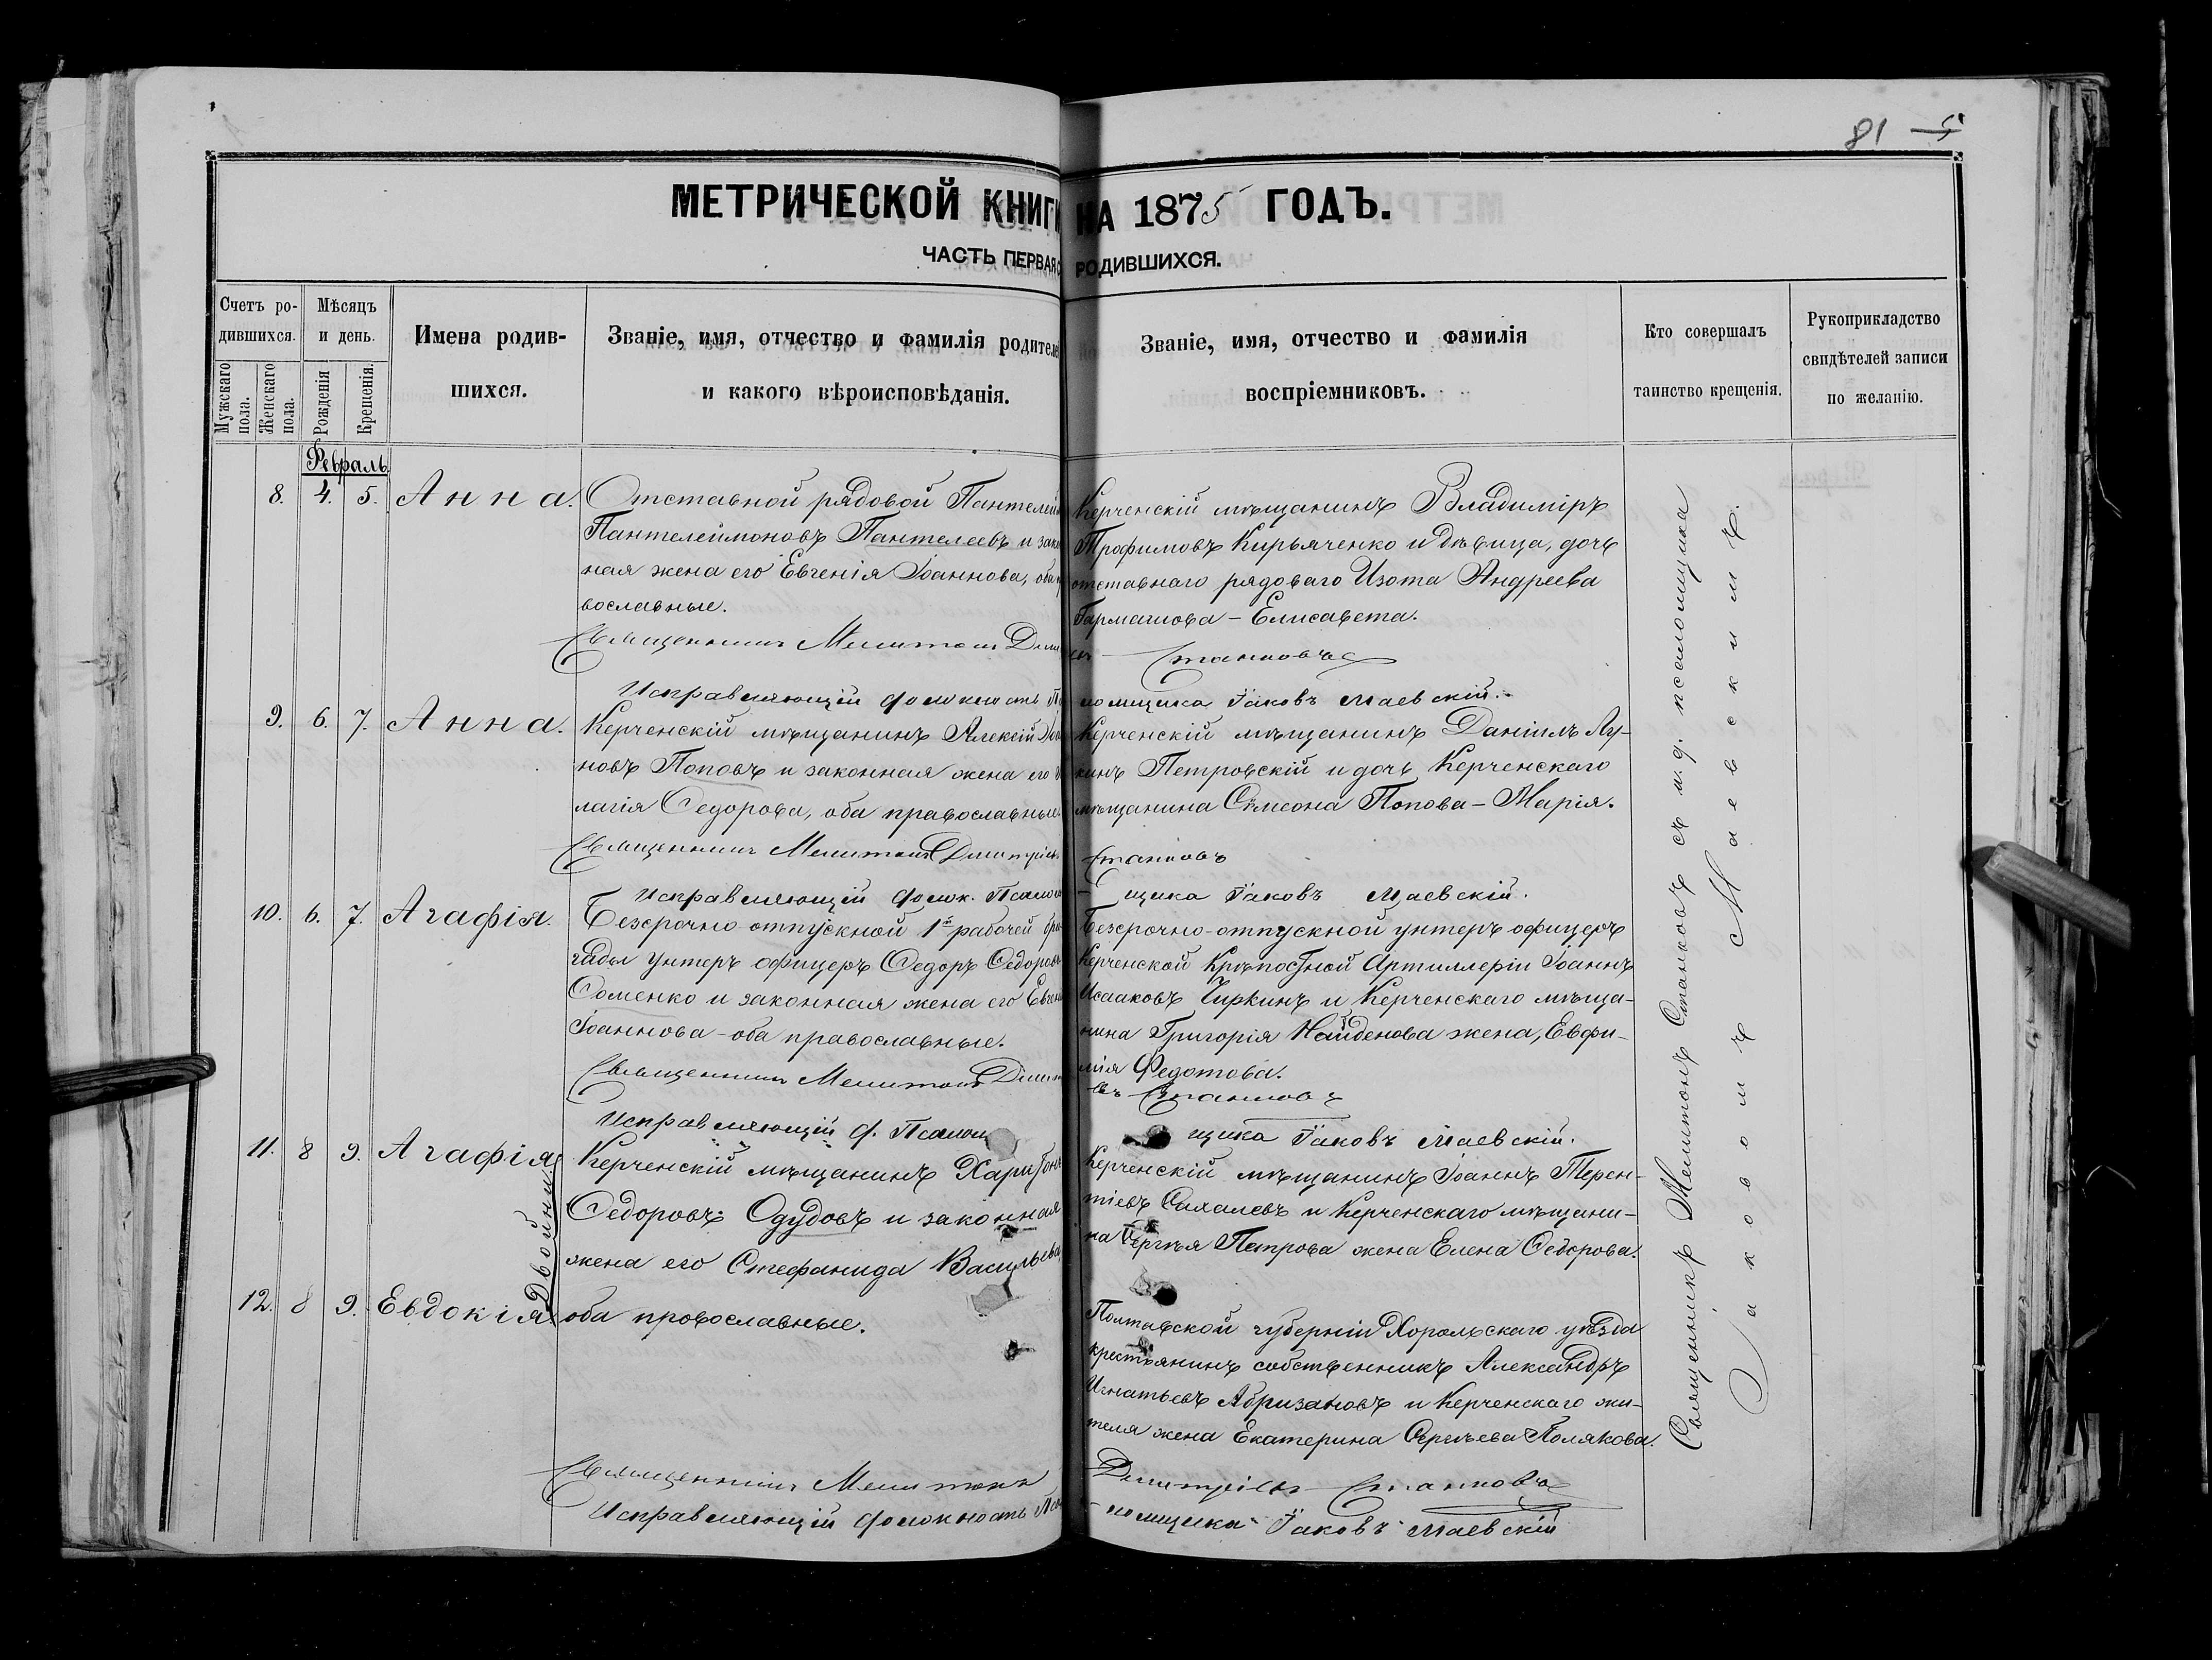 81 5
МЕТРИЧЕСКОЙ КНИГИ НА 1875 ГОДЪ.
ЧАСТЬ ПЕРВАЯ РОДИВШИХСЯ.
Счетъ ро-
дившихся.
Мужскаго пола.
Женскаго пола.
Мѣсяцъ
и день.
Рожденія
Крещенія.
Имена родив-
шихся.
Званіе, имя, отчество и фамилія родителей
и какого вѣроисповѣданія.
Званіе, имя, отчество и фамилія
воспріемниковъ.
Кто совершалъ
таинство крещенія.
Рукоприкладство
свидѣтелей записи
по желанію.
Февраль
8. 4. 5. Анна.
Отставной рядовой Пантелей
Пантелеймоновъ Пантелеевъ и зако
ная жена его Евгенія Іоаннова, оба
вославные.
Керченскій мѣщанинъ Владиміръ
Трофимовъ Кирьяченко и дѣвица, дочь
отставнаго рядоваго Изота Андреева
Гармашова – Елисавета.
Священникъ Мелитонъ Станковъ
Исправляющій должность псаломщика Іаковъ Маевскій.
9. 6. 7. Анна.
Керченскій мѣщанинъ Алексій
новъ Поповъ и законная жена его
лагія Ѳедорова, оба православные.
Керченскій мѣщанинъ Даніилъ Лу-
кинъ Петровскій и дочь Керченскаго
мѣщанина Симеона Попова – Марія.
Священникъ Мелитонъ Димитріевъ Станковъ
Исправляющій должн. Псаломщика Іаковъ Маевскій.
10. 6. 7. Агафія.
Безсрочно-отпускной 1й рабочей бри
гады унтеръ офицеръ Ѳедоръ Ѳедоровъ
Ѳоменко и законная жена его Евген
Іоаннова – оба православные.
Безсрочно-отпускной унтеръ офицеръ
Керченской Крѣпостной Артиллеріи Іоаннъ
Исааковъ Чиркинъ и Керченскаго мѣща-
нина Григорія Найденова жена, Евфи-
мія Федотова.
Священникъ Мелитонъ Димитріевъ Станковъ
Исправляющій д. Псаломщика Іаковъ Маевскій.
11. 8 9. Агафія
Двойни
Керченскій мѣщанинъ Харитонъ
Ѳедоровъ Одудовъ и законная
жена его Стефанида Васильева
Керченскій мѣщанинъ Іоаннъ Терен-
тіевъ Сахалевъ и Керченскаго мѣщани-
на Сергѣя Петрова жена Елена Ѳедорова.
12. 8 9. Евдокія.
оба провославные.
Полтавской губерніи Хорольскаго уѣзда
крестьянинъ собственникъ Александръ
Игнатьевъ Абризановъ и Керченскаго жи-
теля жена Екатерина Сергѣева Полякова.
Священникъ Мелитонъ Димитріевъ Станковъ
Исправляющій должность Псаломщика Іаковъ Маевскій
Священникъ Мелитонъ Станковъ съ и. д. псаломщика
Іаковомъ Маевскимъ.